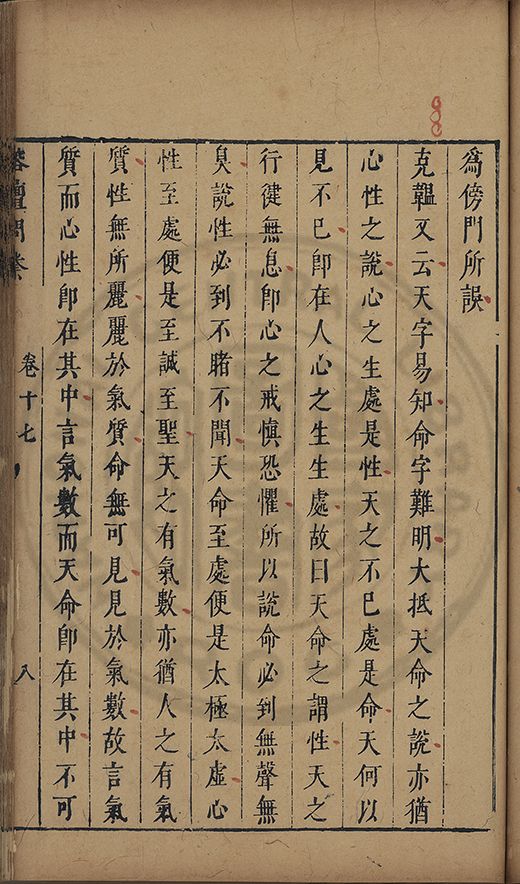 為傍門所誤
克韞又云天字易知命字難明大抵天命之說亦猶
心性之說心之生處是性天之不已處是命天何以
見不已卽在人心之生生處故曰天命之謂性天之
行健無息卽心之戒慎恐懼所以說命必到無聲無
臭說性必到不睹不聞天命至處便是太極太虛心
性至處便是至誠至聖天之有氣數亦猶人之有氣
質性無所麗麗於氣質命無可見見於氣數故言氣
質而心性卽在其中言氣數而天命卽在其中不可
榕壇問業
卷十七
八